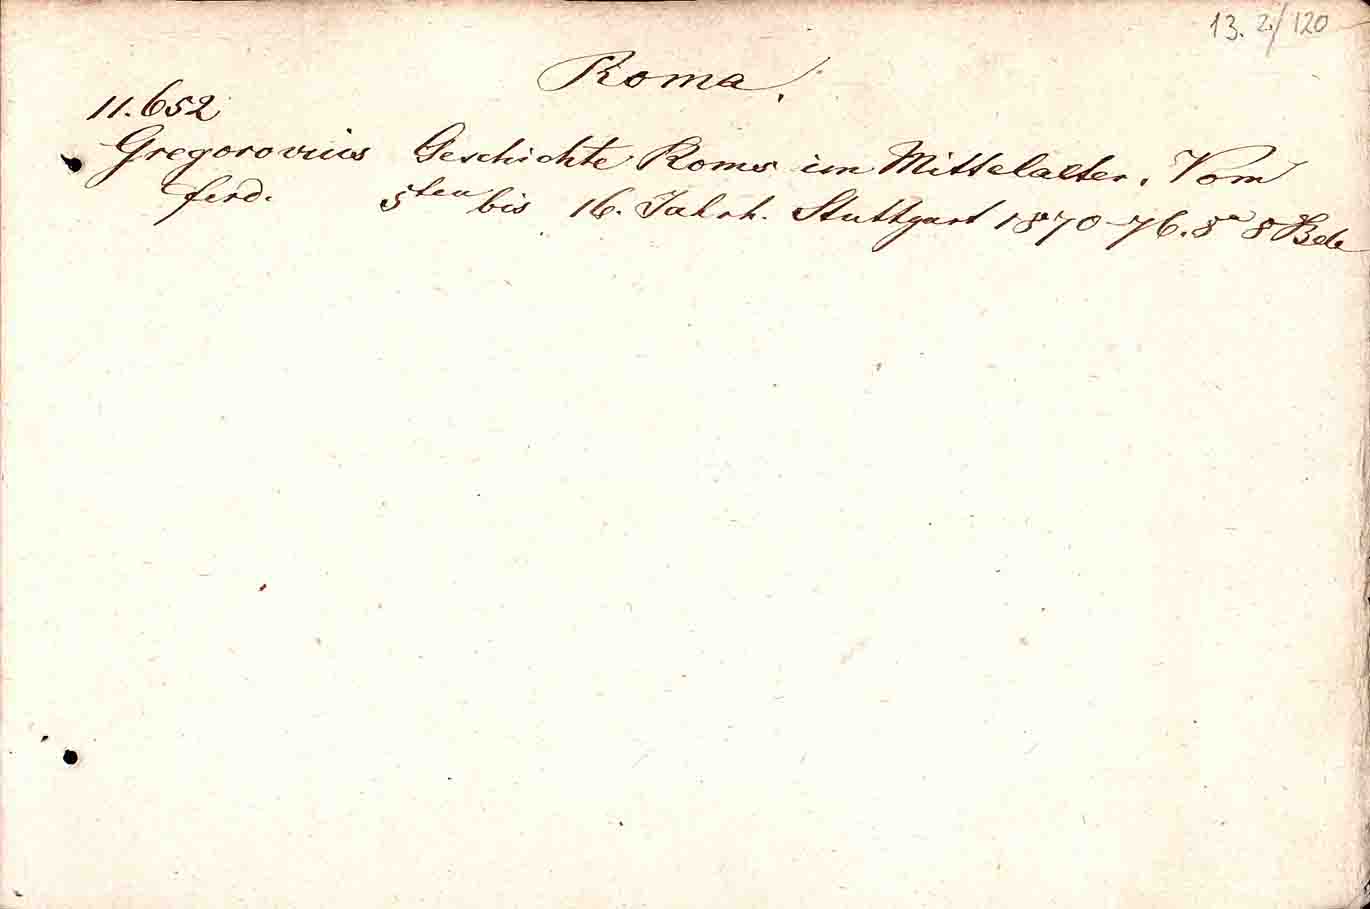 13. 2/120
Roma.
11.652
Gregorovius Geschichte Roms im Mittelalter. Vom
Ferd. 5ten bis 16. Jahrh. Stuttgart 1870-76. 8° 8 Bde